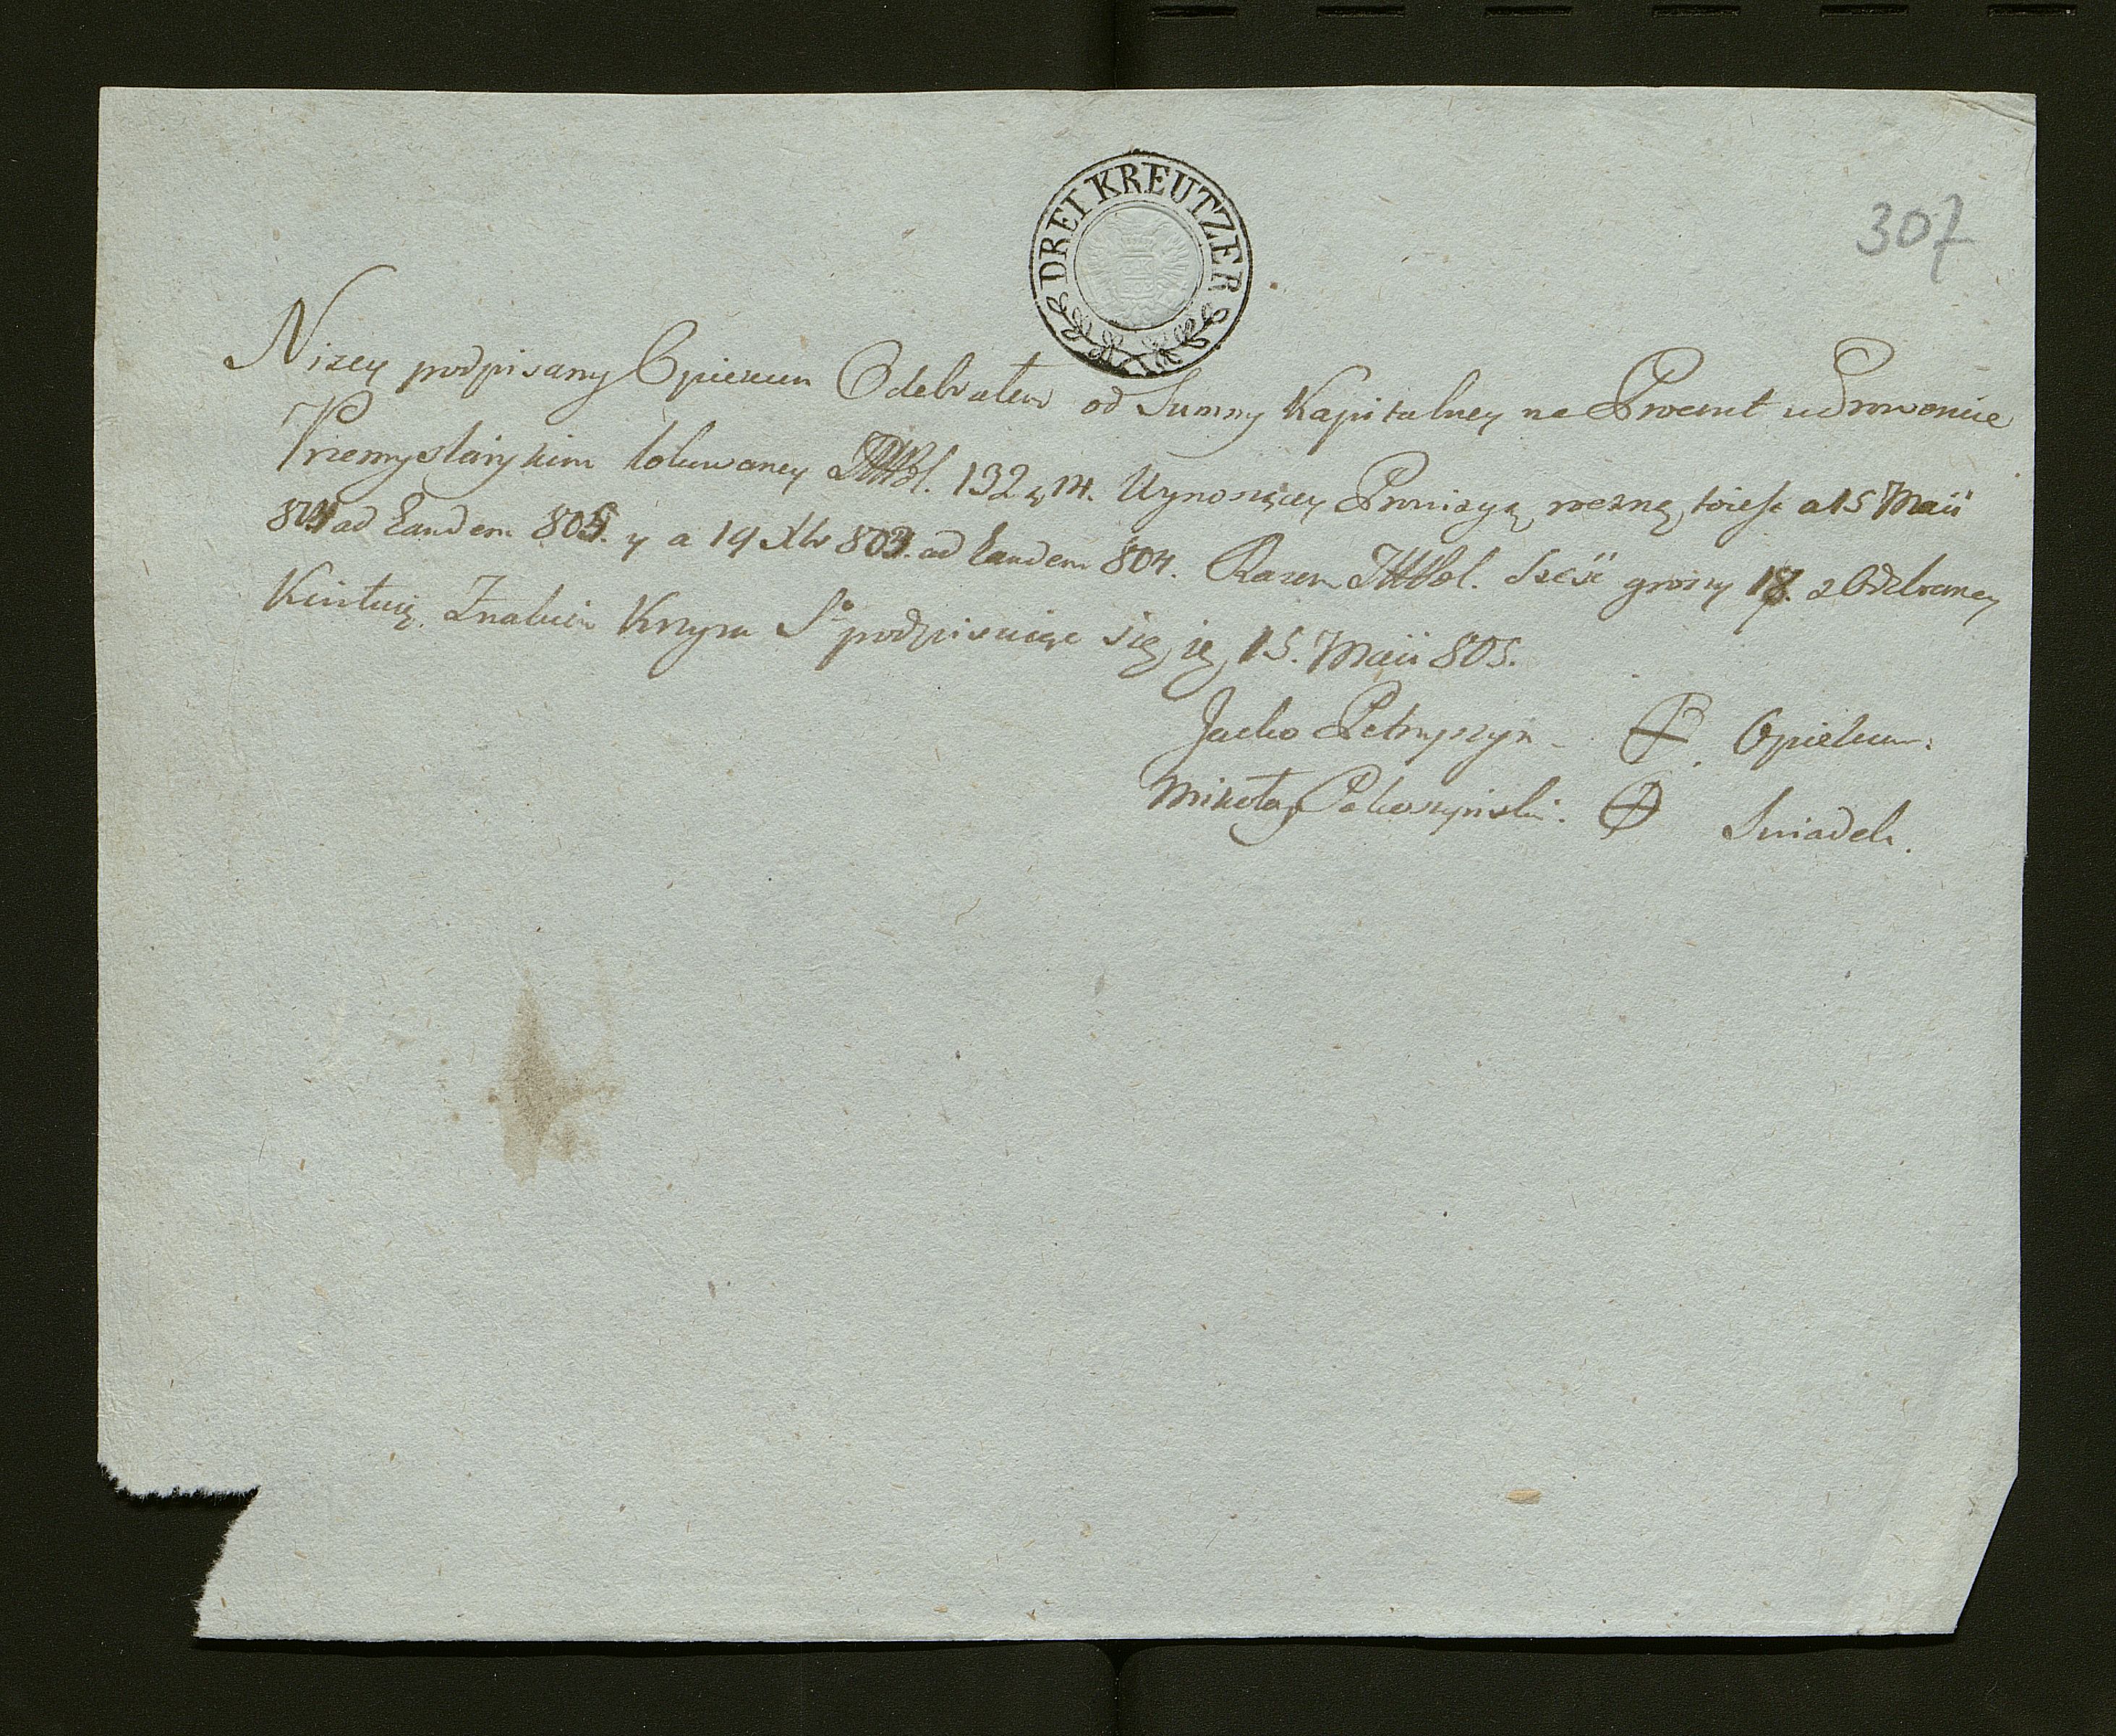 DREI KREUTZER
307
Nizey podpisany Opiekun Odebrałem od Summy Kapitalney na Procent u Drowanue
Przemyslarzkim lokowaney 132 14. Wynoszącey Prowizyą roczną toiest a 15 Maii
804 ad Eandem 805. y a 19 Xbr 803. ad Eandem 804. Razem Sześć groszy 18. z Odebraney
Kwituię Znakiem Krzyza So podpisuiąc się ię 15. Maii 805.
Jacko Petryszyn Opiekun:
Mikołay Swiadek.